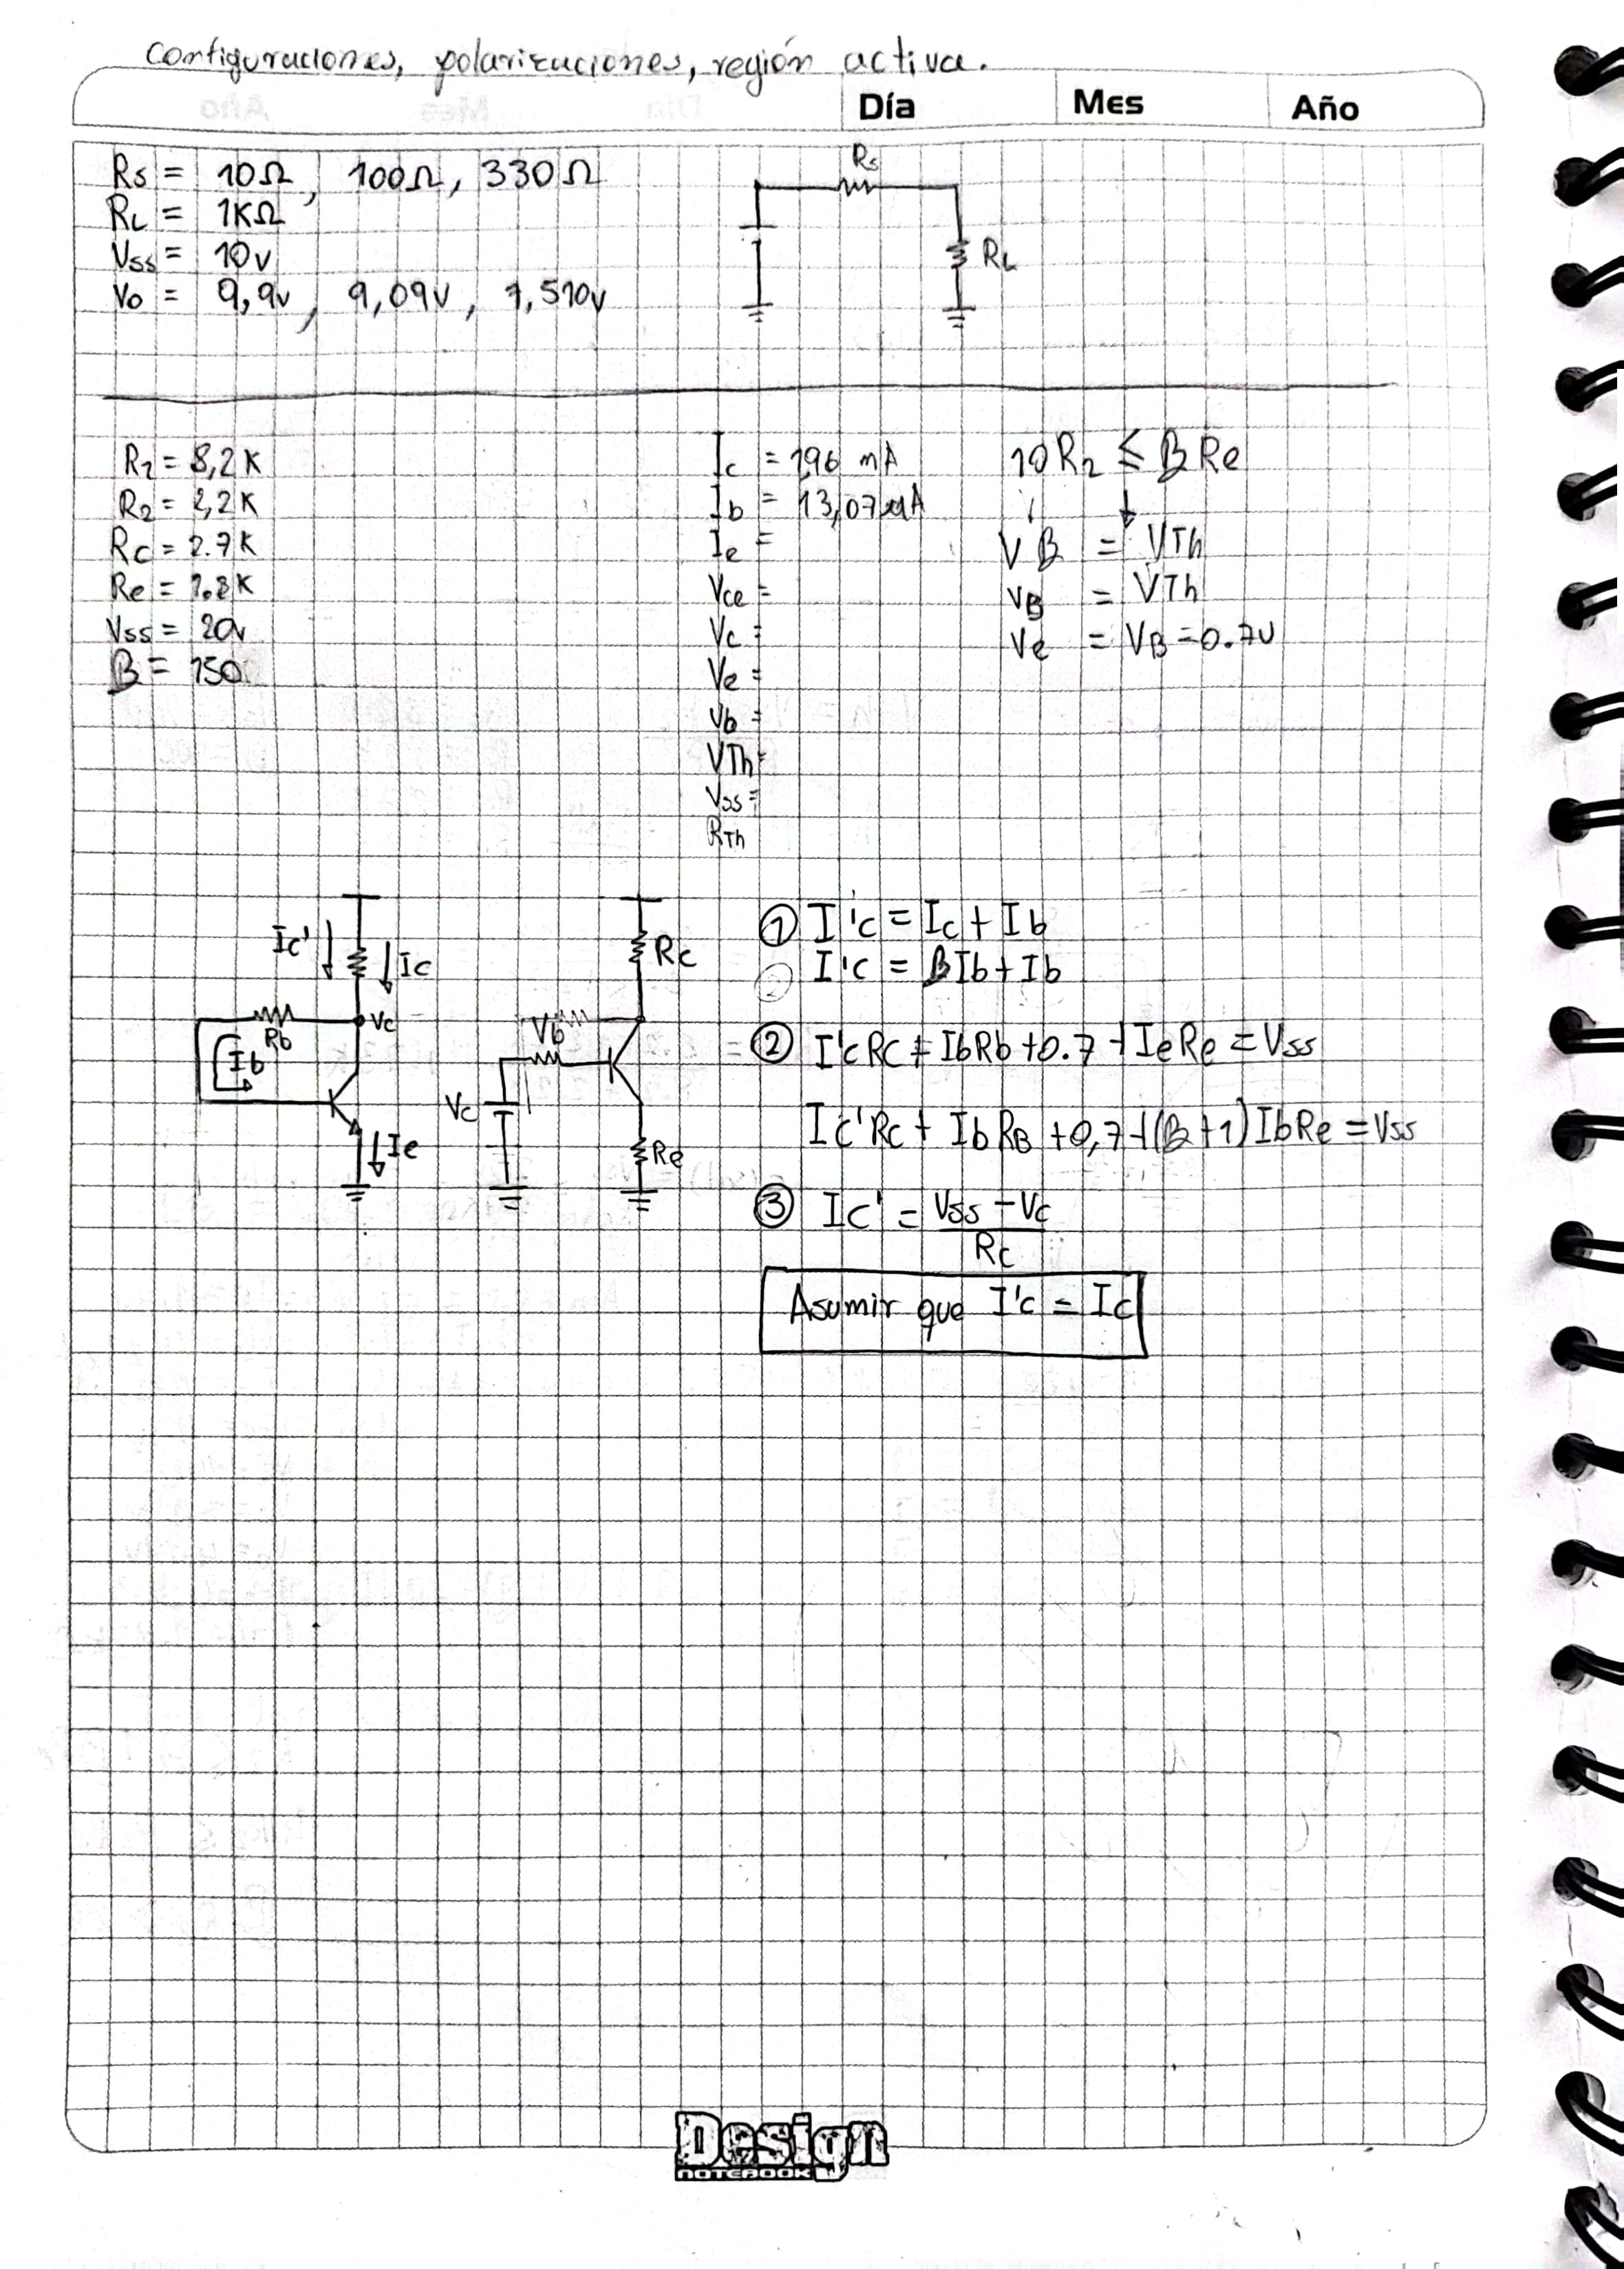 Configuraciones, polarizaciones, región activa.
Día Mes Año
Rs = 10Ω, 100Ω, 330Ω
RL = 1KΩ
Vss = 10v
Vo = 9,9v, 9,09v, 7,510v
Rs
RL
R1 = 8,2K
R2 = 2,2K
Rc = 2.7K
Re = 1.8K
Vss = 20v
B = 150
Ic = 1,96 mA
Ib = 13,07uA
Ie =
Vce =
Vc =
Ve =
Vb =
VTh=
Vss=
RTh
10R2 ≤ BRe
VB = VTh
VB = VTh
Ve = VB=0.7v
Ic' Ic
Rb Vc
Ib
Ie
Rc
Vb
Vc
Re
① I'c = Ic + Ib
I'c = βIb + Ib
② I'cRc + IbRb +0.7 + IeRe = Vss
Ic'Rc + IbRB +0,7+(B+1)IbRe = Vss
③ Ic' = Vss - Vc
Rc
Asumir que I'c = Ic
Design
NOTEBOOK